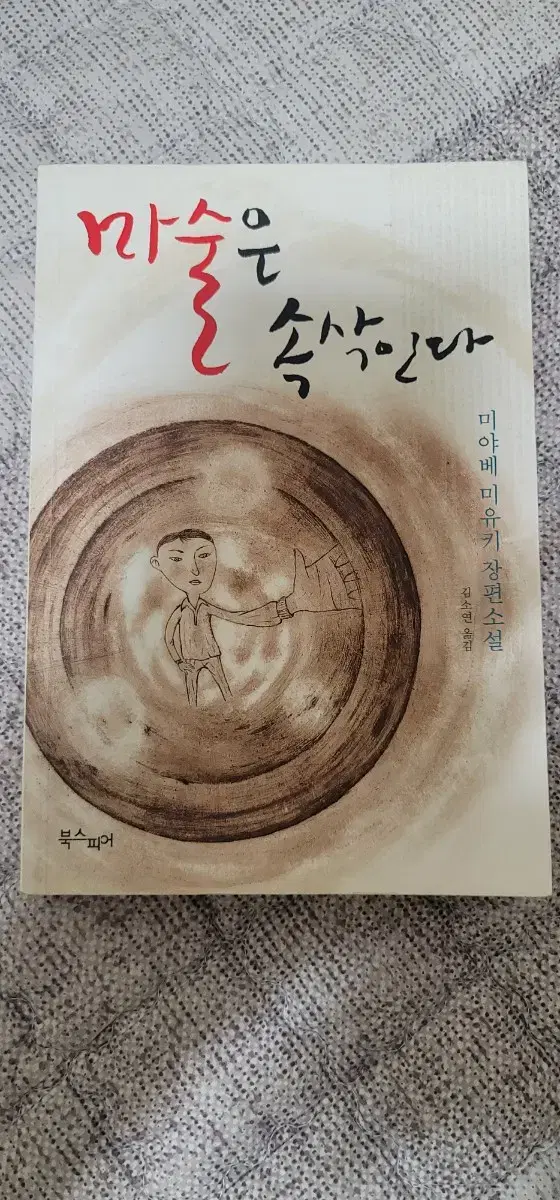 마술은
속삭인다
미야베 미유키 장편소설
김소연 옮김
북스피어